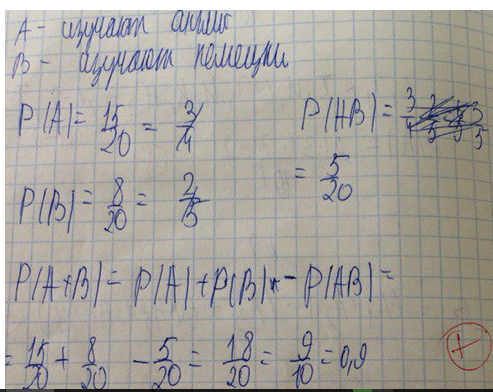 A - изучают англ
B - изучают немецкий
P(A) = 15/20 = 3/4
P(AB) = 3/4
= 5/20
P(B) = 8/20 = 2/5
P(A+B) = P(A) + P(B) - P(AB) =
= 15/20 + 8/20 - 5/20 = 18/20 = 9/10 = 0,9
+